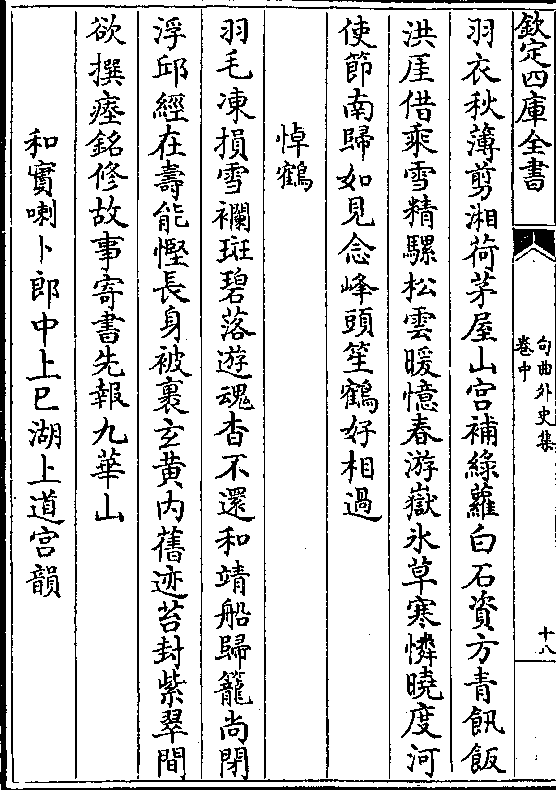 欽定四庫全書
句曲外史集
卷中
十八
羽衣秋薄剪湘荷茅屋山宫補緑蘿白石資方青飢飯
洪厓借乘雪精騾松雲暖憶春游嶽氷草寒憐曉度河
使節南歸如見念峰頭笙鶴好相過
悼鶴
羽毛凍損雪襴斑碧落遊魂杳不還和靖船歸籠尚閉
浮邱經在壽能慳長身被裹玄黄内舊迹苔封紫翠間
欲撰瘞銘修故事寄書先報九華山
和實喇卜郎中上巳湖上道宫韻